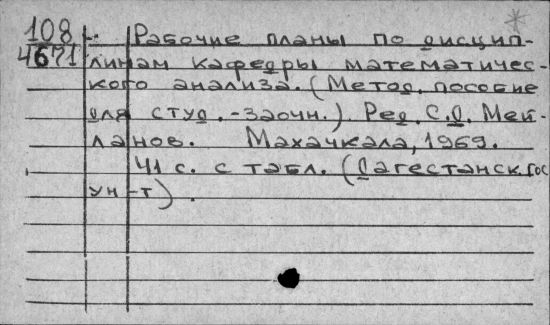 108 Рабочие планы по дисцип-
4671 линам кафедры математичес-
кого анализа. (Метод. пособие
для студ. -заочн.). Ред. С.О. Мей-
ланов. Махачкала, 1969.
41 с. с табл. (Дагестанск. гос
ун-т).